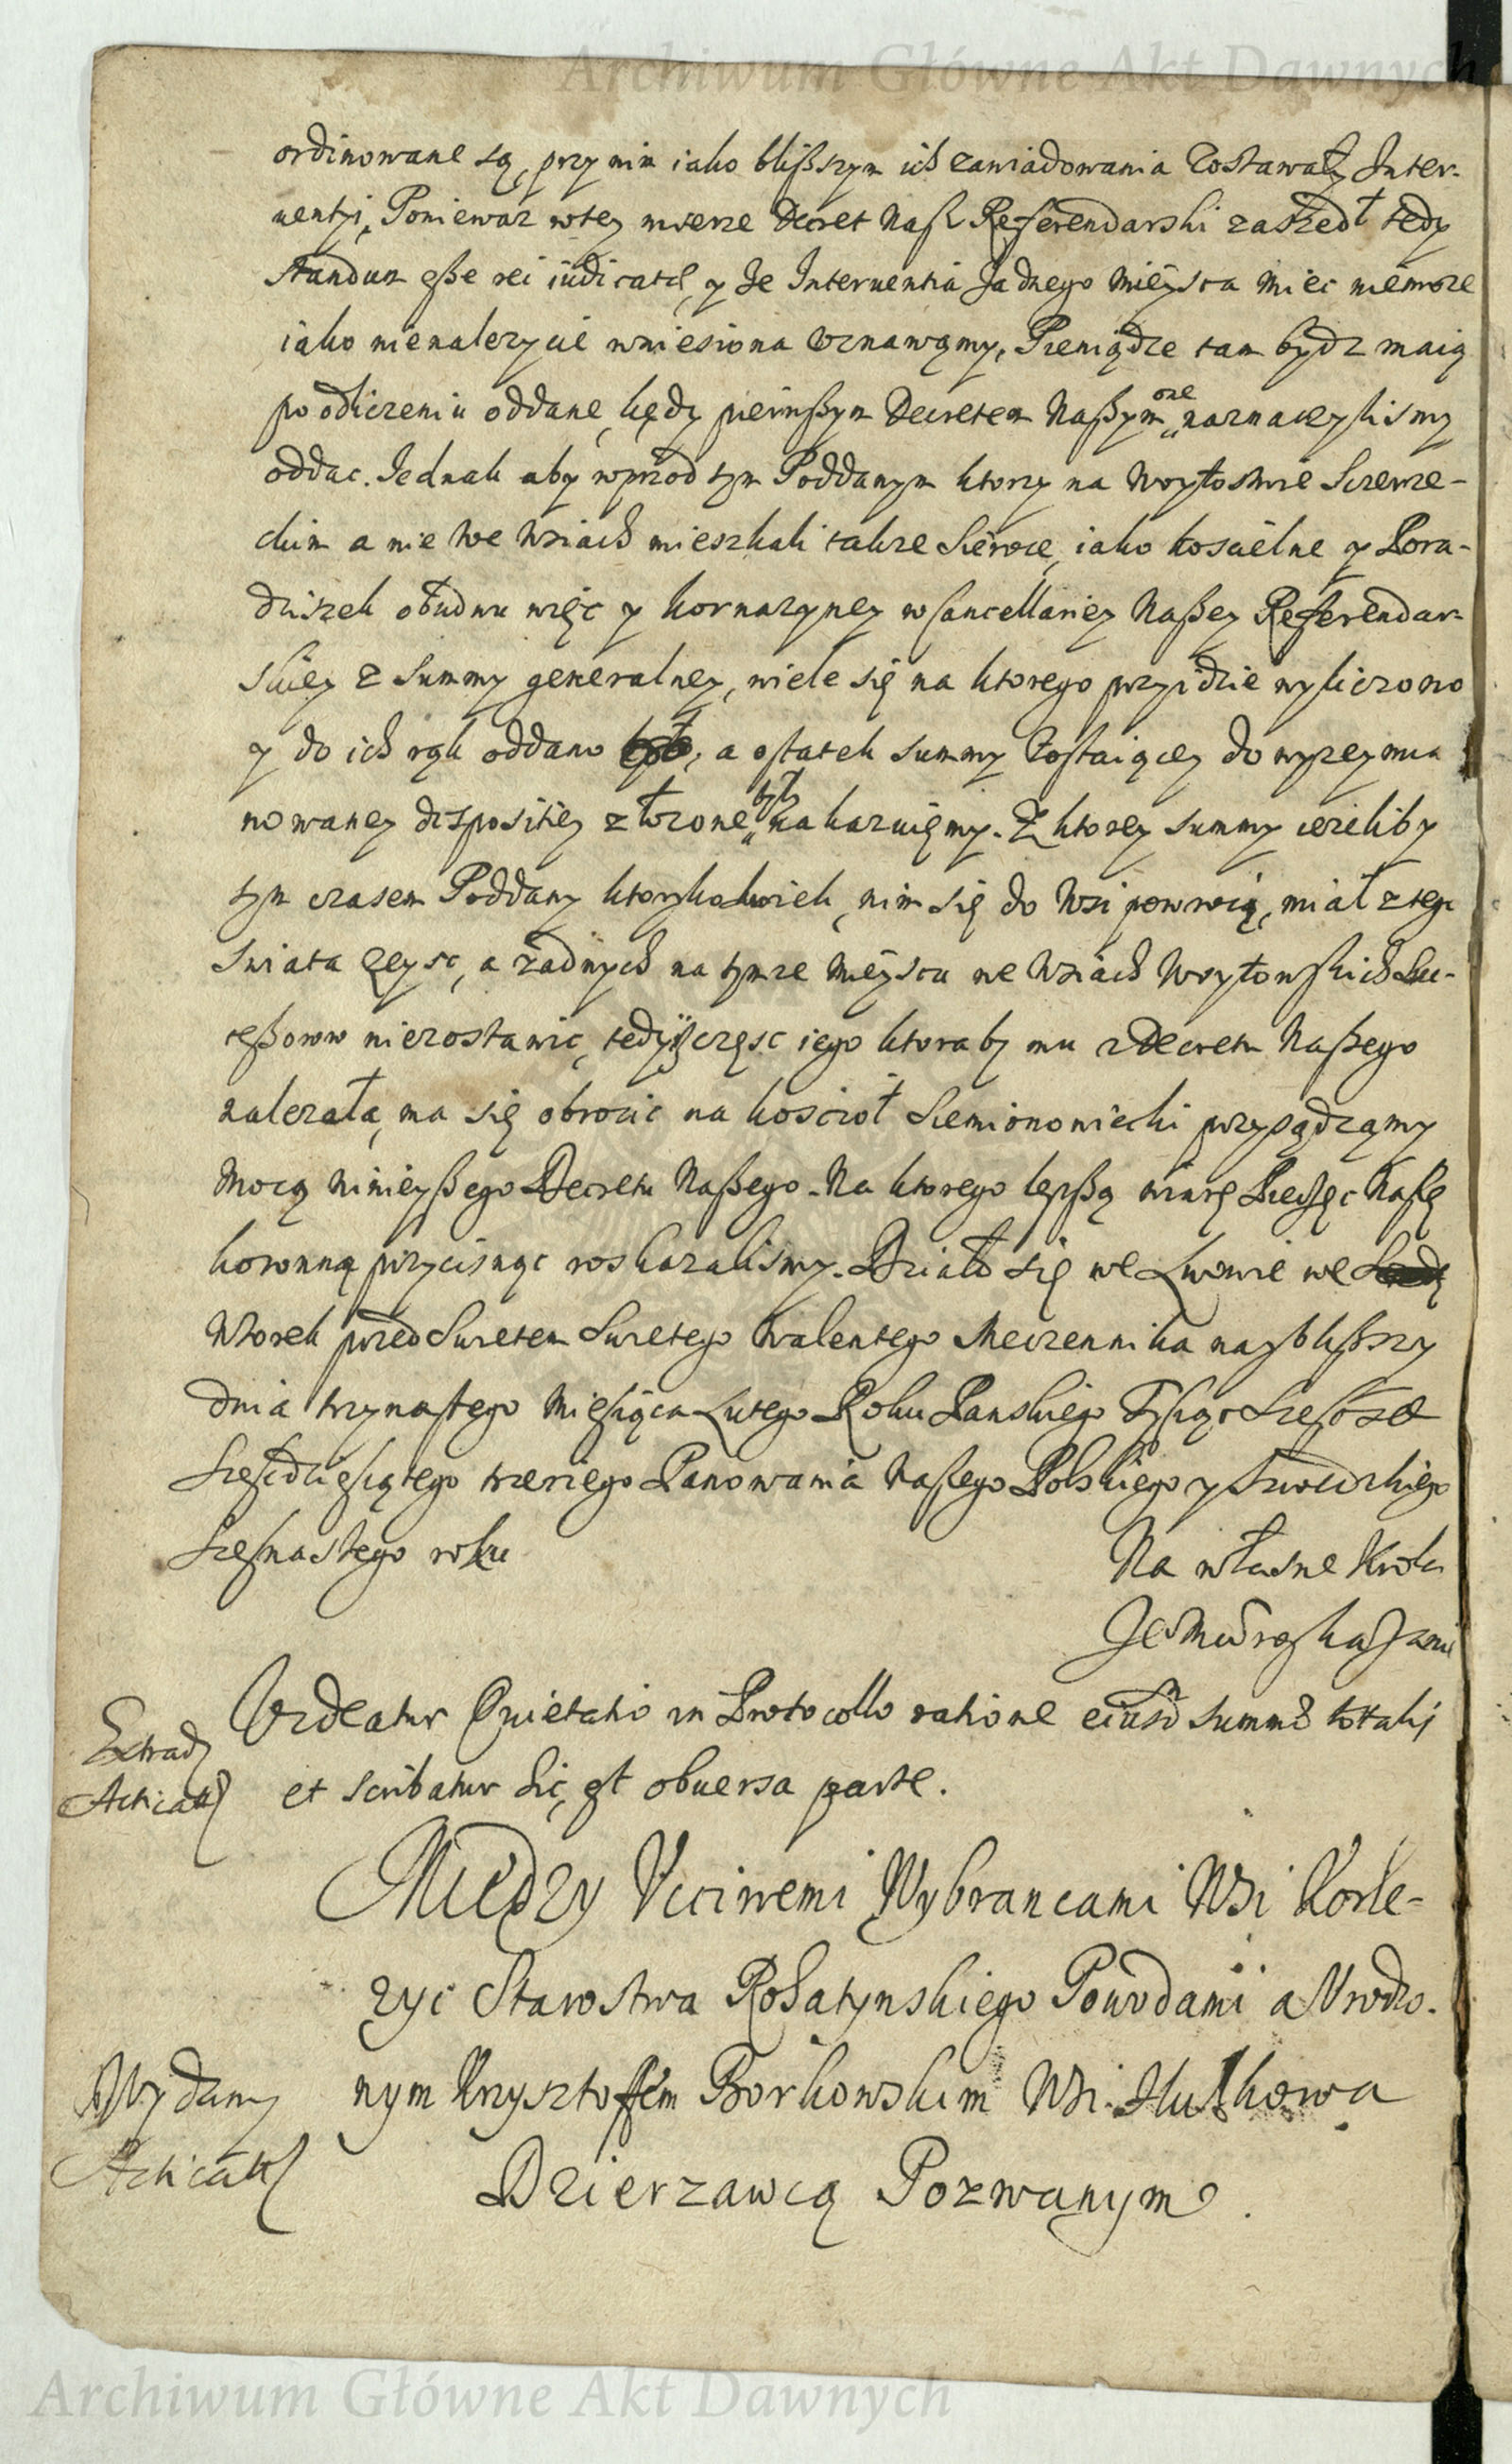 Archiwum Główne Akt Dawnych
ordinowane są, przy nim iako bliższym ich zawiadowania zostawały Inter-
uentyi, Poniewaz w tey mierze Decret Nasz Referendarski zaszedł tedy
standum esse rei iudicatæ, y ze Interuentia zadnego mieysca miec niemoze
iako nienalezycie wniesiona uznawamy, Pieniądze tam bydz maią
po odliczeniu oddane, kędy pierwszym Decretem Naszym one naznaczylismy
oddac. Jednak aby wprzod tym Poddanym ktorzy na Woytostwie
a nie we Wsiach mieszkali takze Sierocie, iako koscielne y
więc y w Cancellariey Naszey Referendar-
skiey z summy generalney, wiele się na ktorego przyidzie wyliczono
y do ich rąk oddano, a ostatek summy zostaiącey do wyzeymia
nowaney dispositiey złozone było nakazuiemy. Z ktorey summy iezeliby
tym czasem Poddany ktorykolwiek, nim się do Wsi powrocą, miał z tego
swiata zeysc, a zadnych na tymze mieyscu we Wsiach Woytowskich Suc-
cessorow niezostawic, tedy częsc iego ktoraby mu z Decretu Naszego
nalezała, ma się obrocic na kosciół Siemionowiecki przysądzamy
Mocą Ninieyszego Decretu Naszego. Na ktorego lepszą wiarę Pieczęc Naszę
koronną przycisnąc roskazalismy. Działo się we Lwowie we
Wtorek przed Swietem Swietego Walentego Meczennika naybliższy
dnia trzynastego Miesiąca Lutego Roku Panskiego Tysiąc Szescset
Szescdziesiątego trzeciego Panowania Naszego Polskiego y Szwedzkiego
Szesnastego roku
Na własne Krola
Je° Mci roskazanie
Extrad
Acticat
Videatur Quietatio in Protocollo ratione eiusd summæ totalis
et scribatur hic, est obuersa parte.
Między Vcciwemi Wybrancami Wsi Korle-
zyc Starostwa Rohatynskiego Powodami a Vrodzo-
nym Krzysztofem Borkowskim Wsi
Dzierzawcą Pozwanym.
Wydany
Acticat
Archiwum Główne Akt Dawnych